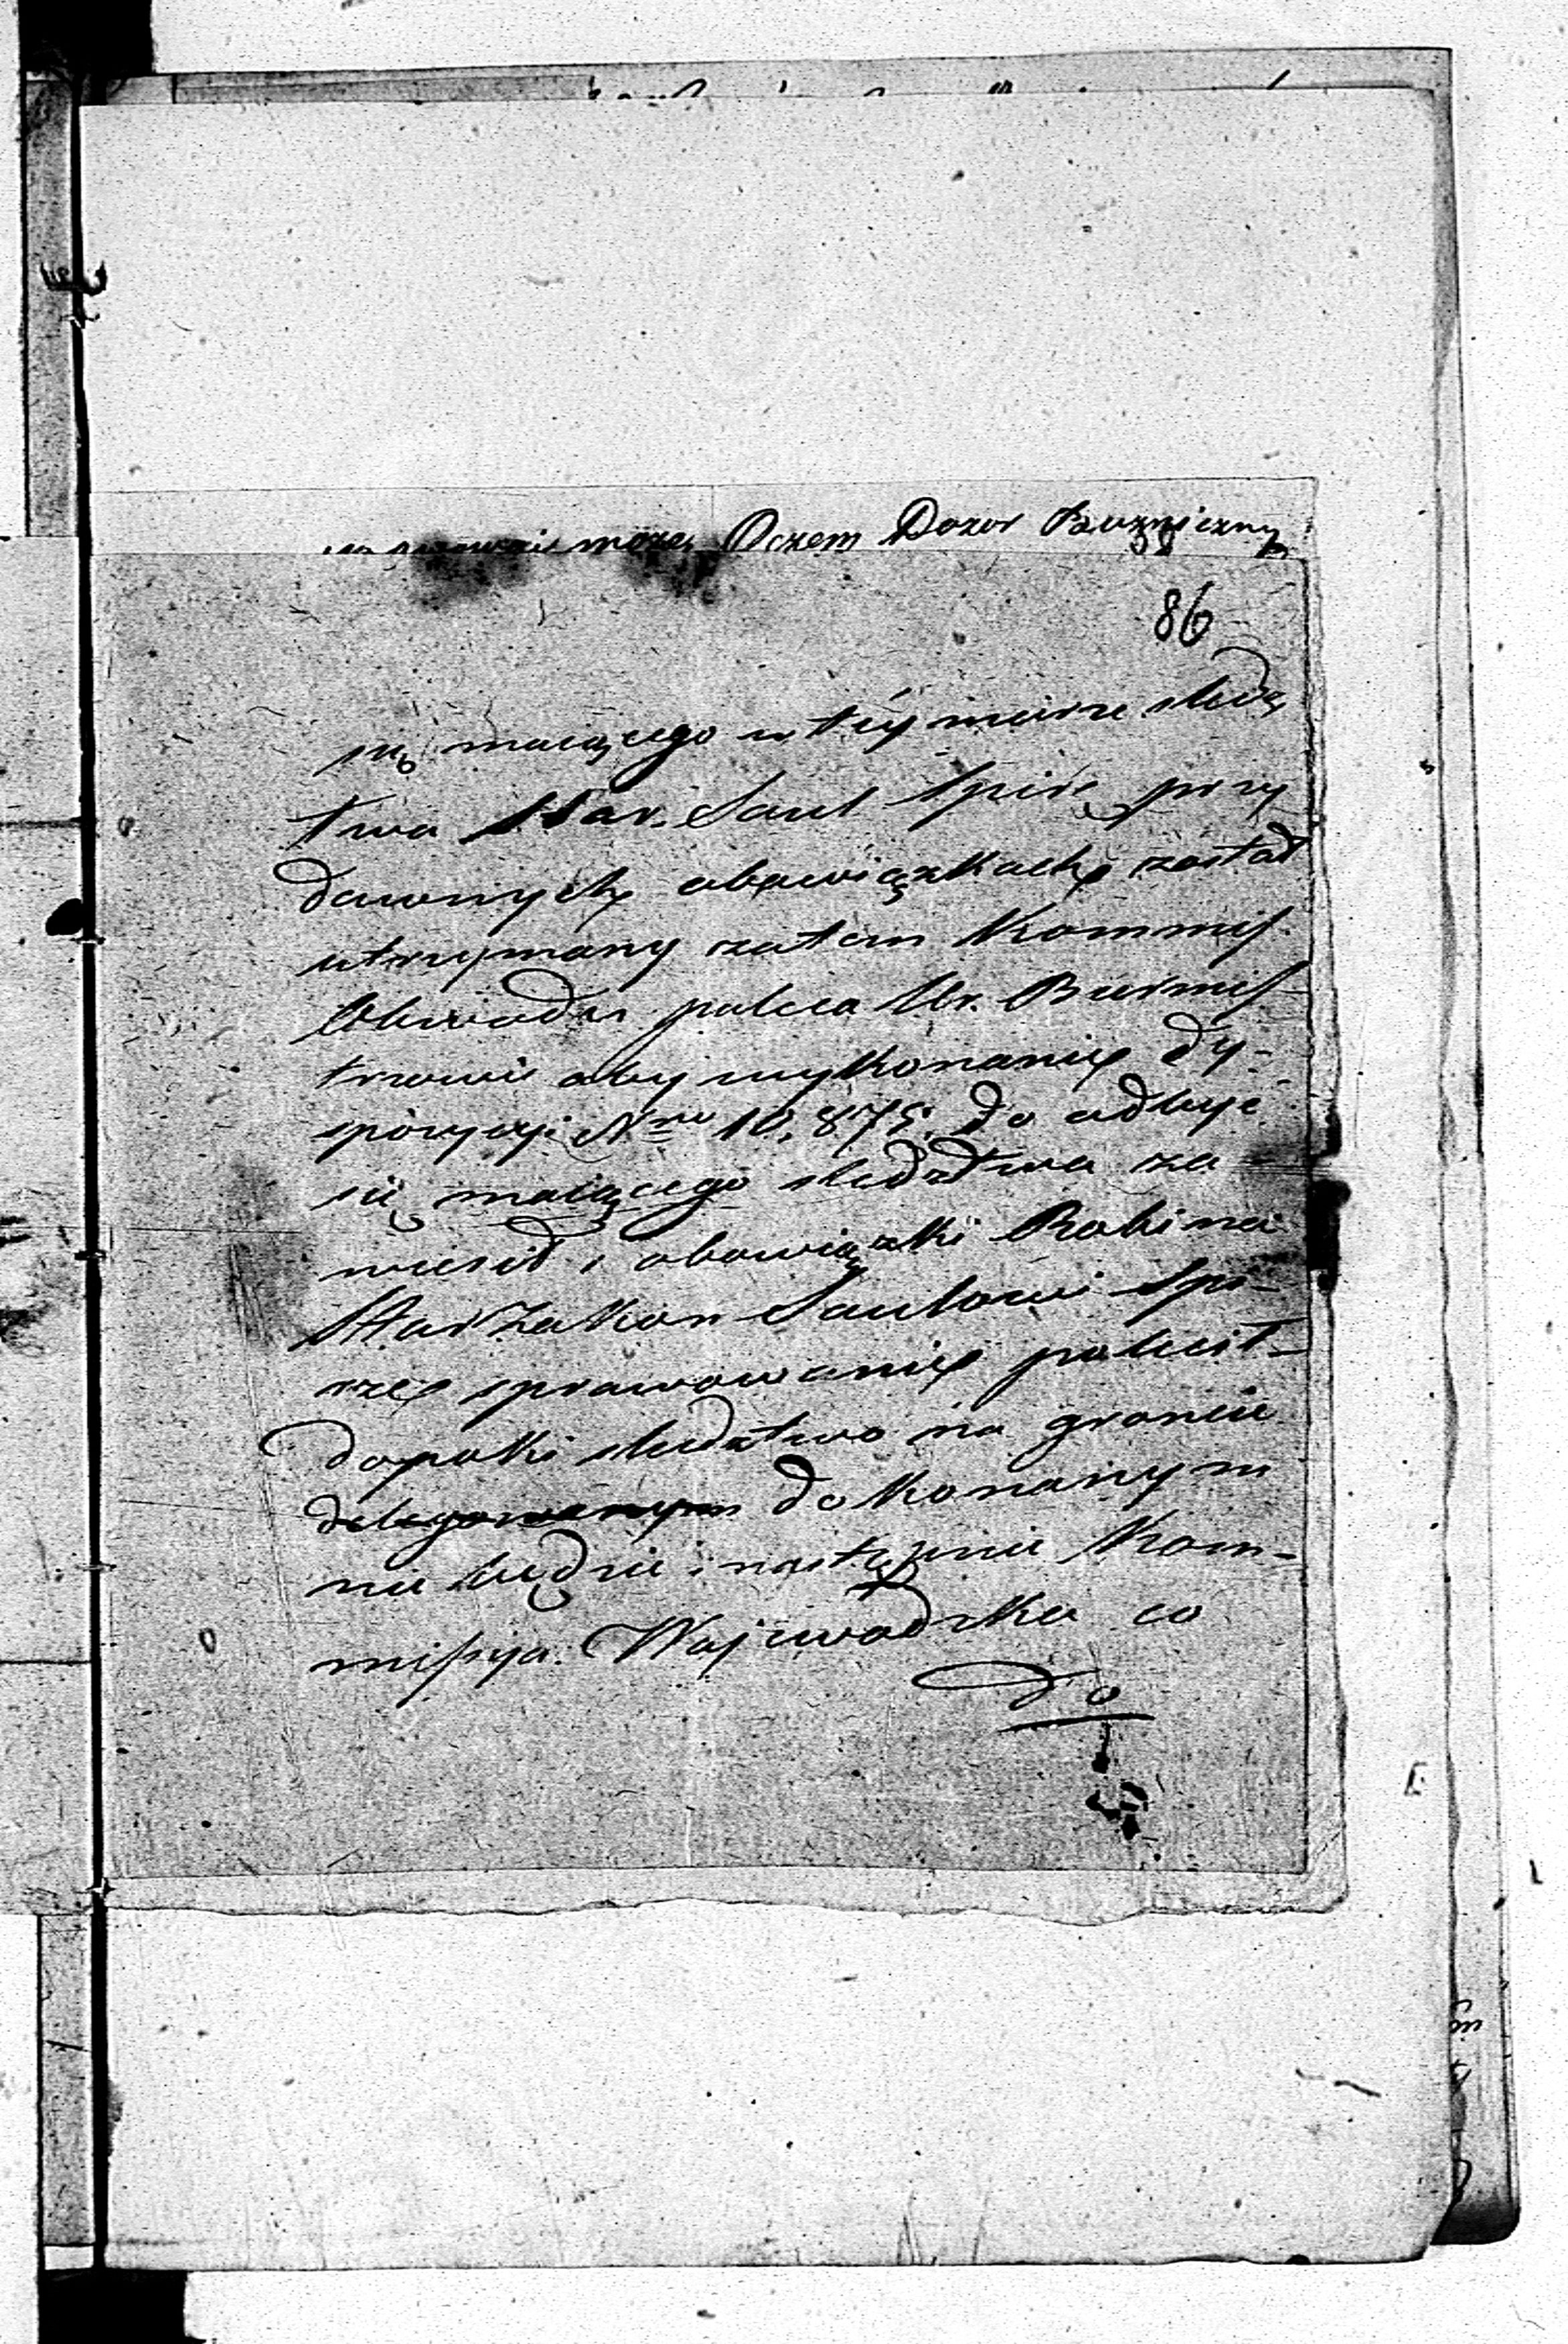 może Oczem Dozor Bużniczny
86
się maiącego w tey mierze sledz
twa Star. Saul Spirę przy
dawnych obowiązkach zostal
utrzymany zatem Kommiss.
Obwodu poleca Ur. Burmis
trzowi aby wykonanie dy-
spozycyi Nro 10,875. do odbyć
się maiącego sledztwa za
wiesił i obowiązki Rabina
Starzakon Saulowi Spi-
rze sprawowanie polecił-
dopoki sledztwo na groncie
delegowanym dokonanym
nie będzie i następnie Kom-
missya Wojewodzka co
do